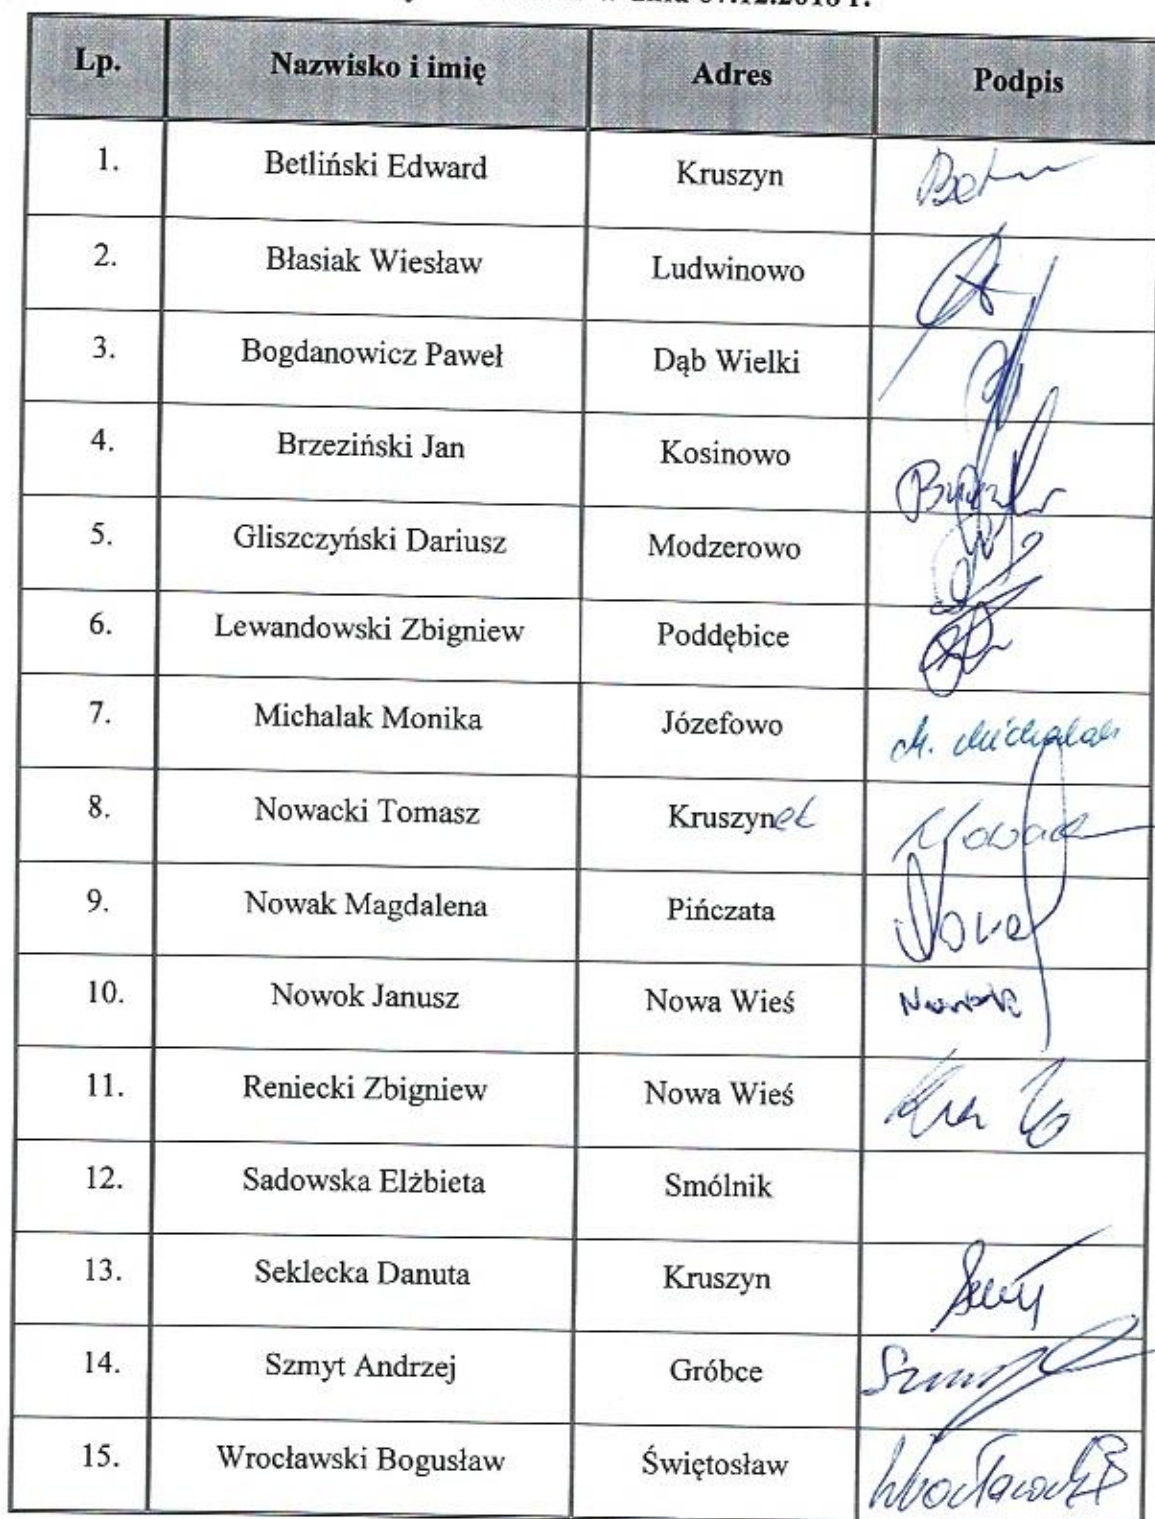 w dniu 07.12.2018 r.
Lp. Nazwisko i imię Adres Podpis
1. Betliński Edward Kruszyn
2. Błasiak Wiesław Ludwinowo
3. Bogdanowicz Paweł Dąb Wielki
4. Brzeziński Jan Kosinowo
5. Gliszczyński Dariusz Modzerowo
6. Lewandowski Zbigniew Poddębice
7. Michalak Monika Józefowo M. Michalak
8. Nowacki Tomasz Kruszynek
9. Nowak Magdalena Pińczata
10. Nowok Janusz Nowa Wieś
11. Reniecki Zbigniew Nowa Wieś
12. Sadowska Elżbieta Smólnik
13. Seklecka Danuta Kruszyn
14. Szmyt Andrzej Gróbce
15. Wrocławski Bogusław Świętosław